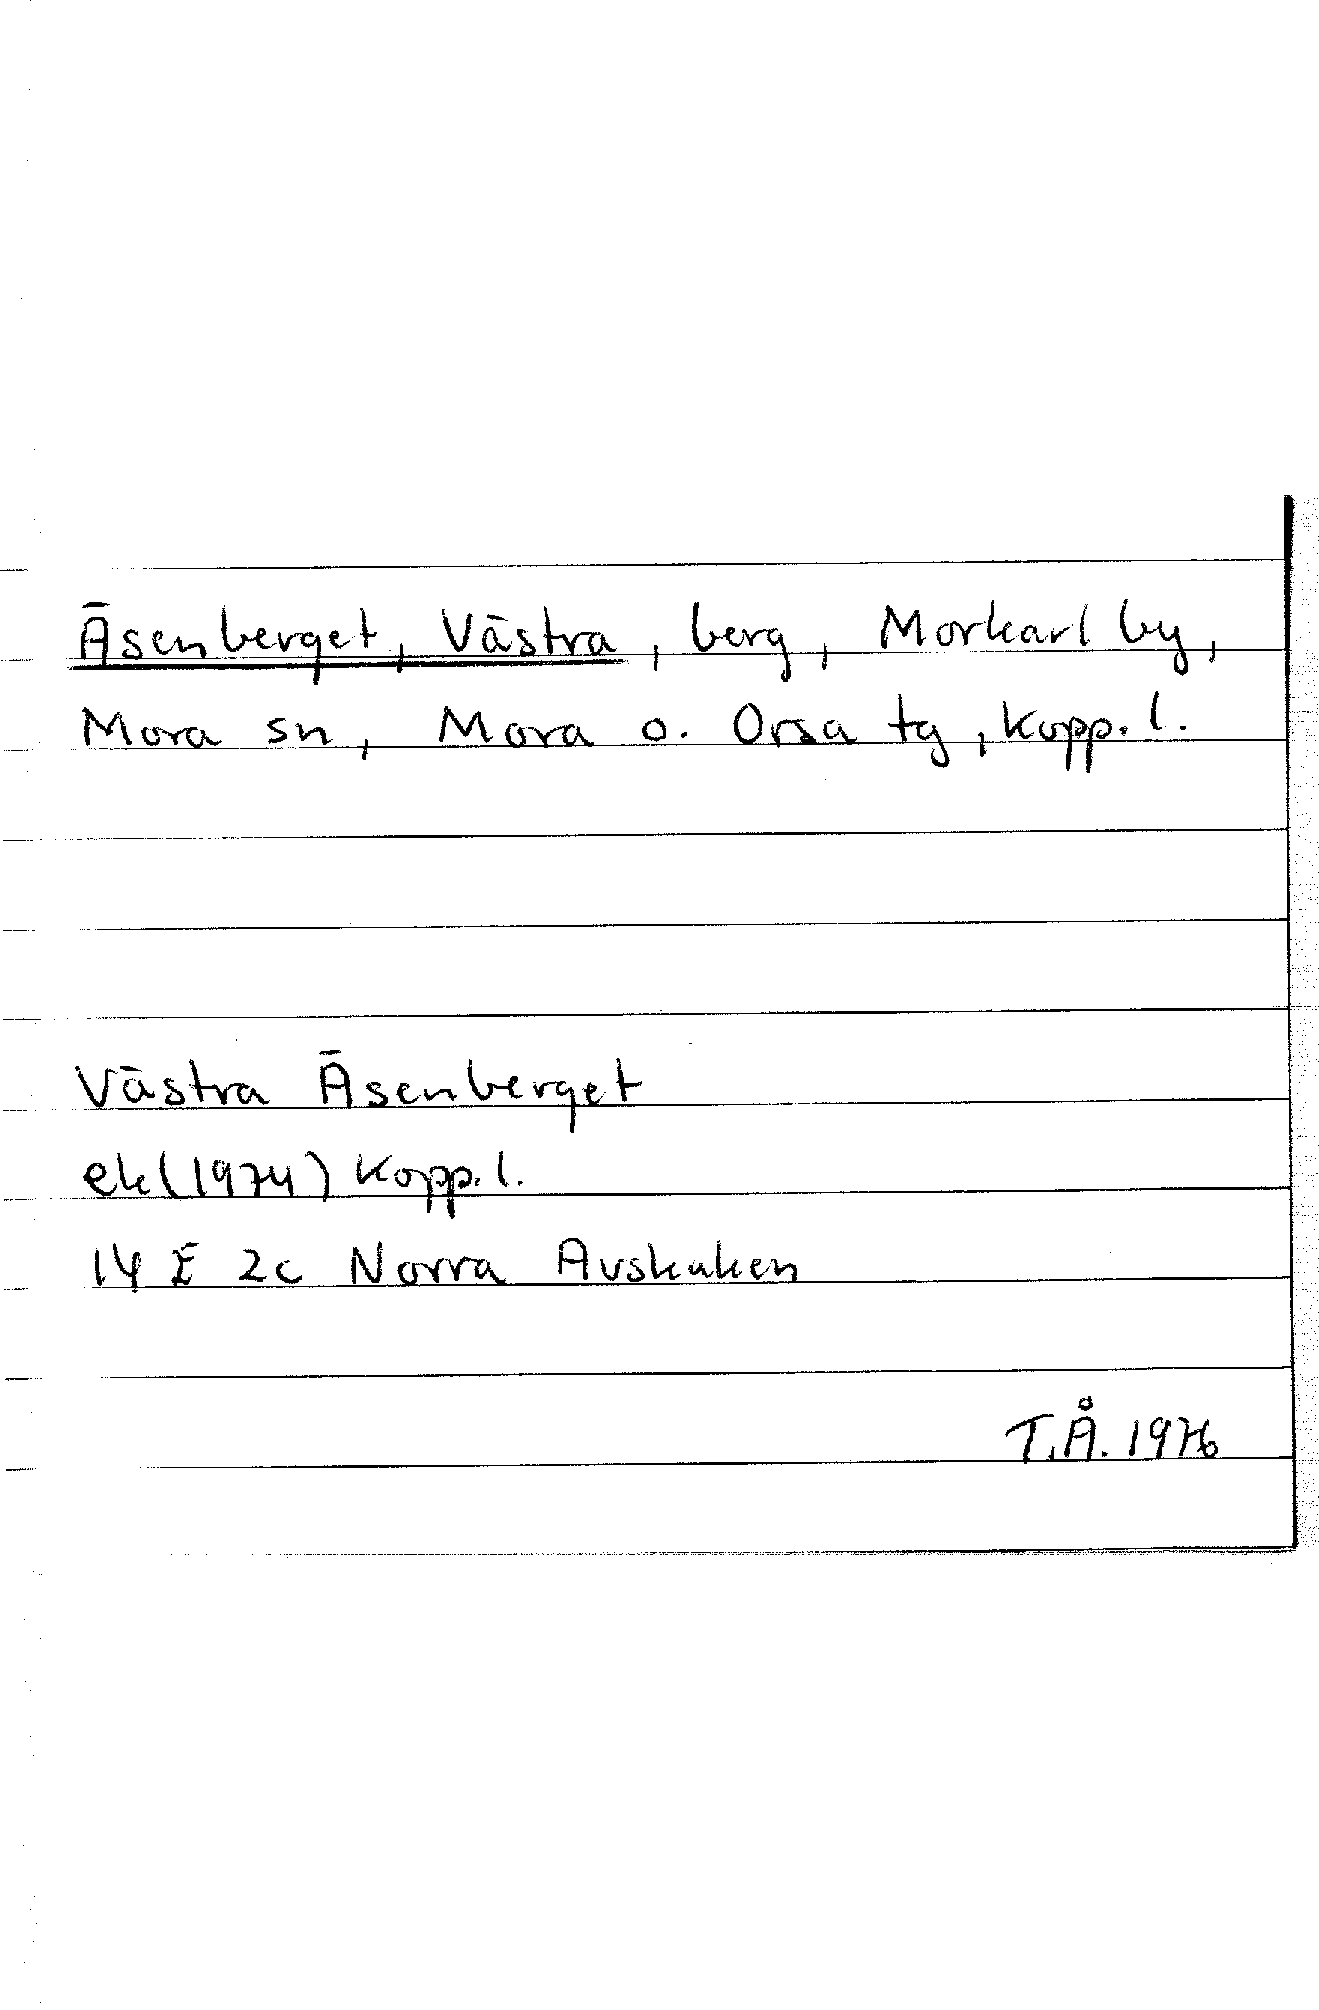 Äsenberget, Västra, berg, Morkarl by,
Mora sn, Mora o. Orsa tg, Kopp. l.
Västra Äsenberget
ek (1974) Kopp. l.
14 E 2c Norra Avskaken
T.Å. 1976